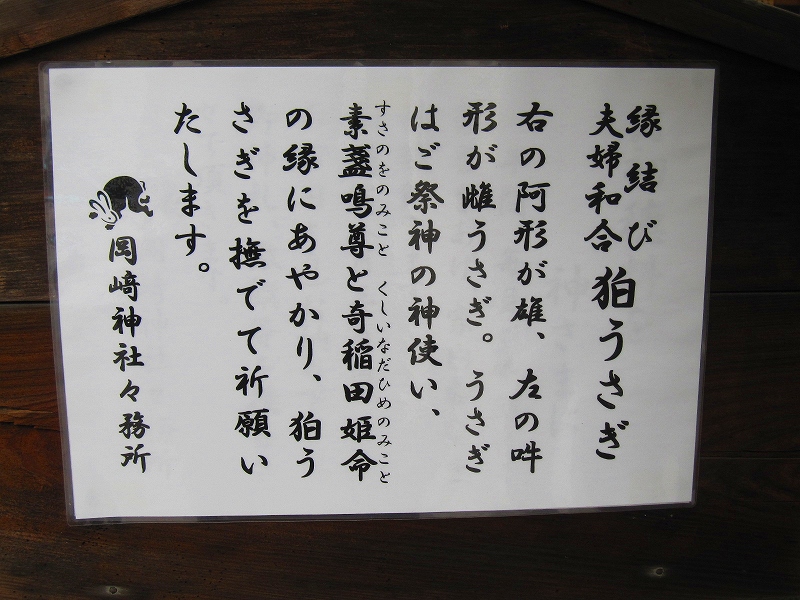 縁結び
夫婦和合
狛うさぎ
右の阿形が雄、左の吽
形が雌うさぎ。うさぎ
はご祭神の神使い、
すさのをのみこと くしいなだひめのみこと
素盞鳴尊と奇稲田姫命
の縁にあやかり、狛う
さぎを撫でて祈願い
たします。
岡﨑神社々務所